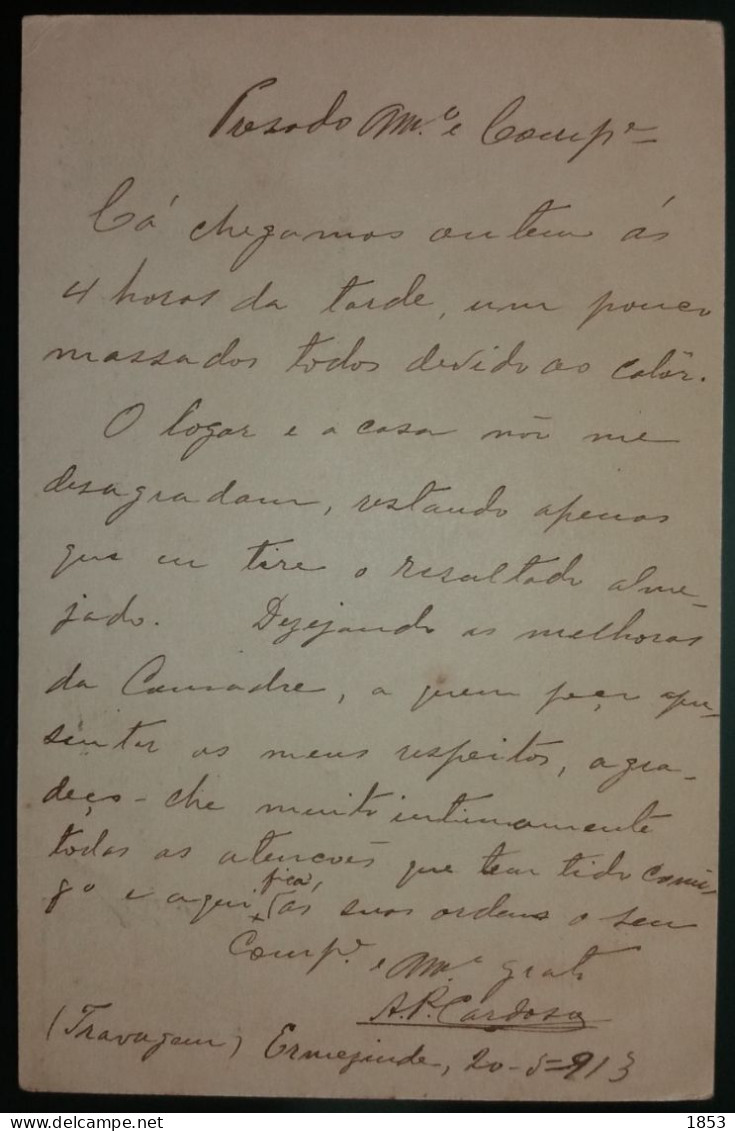 Presado Am.º e Comp.e
Cá chegamos ontem ás
4 horas da tarde, um pouco
massados todos devido ao calôr.
O logar e a casa não me
desagradam, restando apenas
que eu tire o resultado alme-
jado. Dezejando as melhoras
da Comadre, a quem peço apre-
sentar os meus respeitos, agra-
deço-lhe muito intimamente
todas as atencoēs que tem tido comi-
go e aqui fica, ás suas ordens o seu
Comp.e e Am.º grato
A. P. Cardoso
(Travagem) Ermezinde, 20-5-913
1853